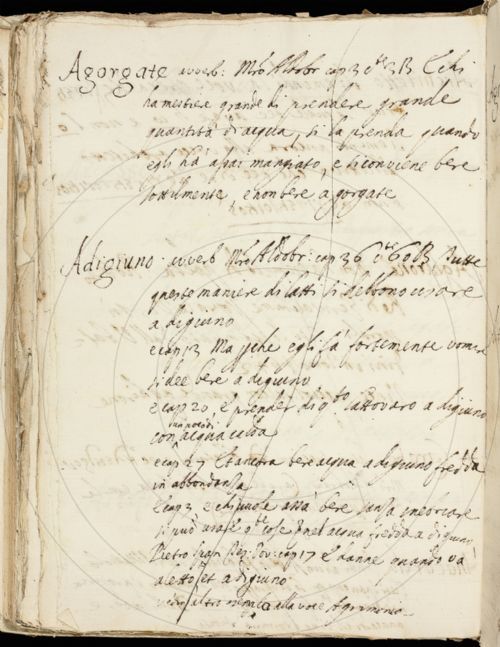 Agorgate avverb: Mro Aldobr cap 3 B E chi
ha mestiere grande di prendere grande
quantità di acqua, si la prenda quando
egli ha assai mangiato, e si conviene bere
sottilmente, e non bere a gorgate
Adigiuno avverb Mro Aldobr: cap 36 B Tutte
queste maniere di latti si debbono usare
a digiuno
e cap 13 che egli fa fortemente vomire
si dee bere a digiuno
e cap 20, e prender di a digiuno
con acqua calda
e cap 27 Et ancora bere acqua a digiuno fredda
in abbondanza
E cap 3 E chi vuole assai bere sanza inebriare
si può usare cose acqua fredda a digiuno
Pietro Span cap 17 E danne quando va
a letto et a digiuno
altro alla voce Agrimonia